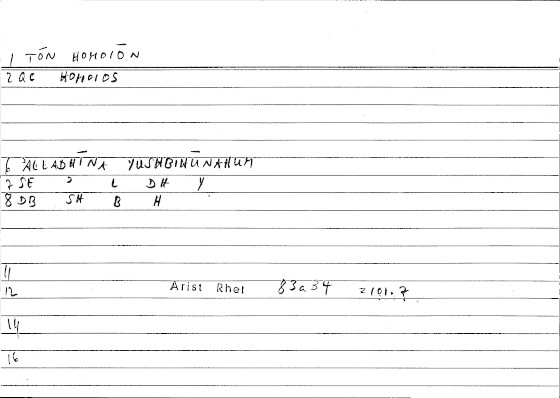 1 TŌN HOMOIŌN
2 QC HOMOIOS
6 'ALLADHĪNA YUSHBIHŪNAHUM
7 SE ' L DH Y
8 DB SH B H
11
12 Arist Rhet 83a34 2101.7
14
16